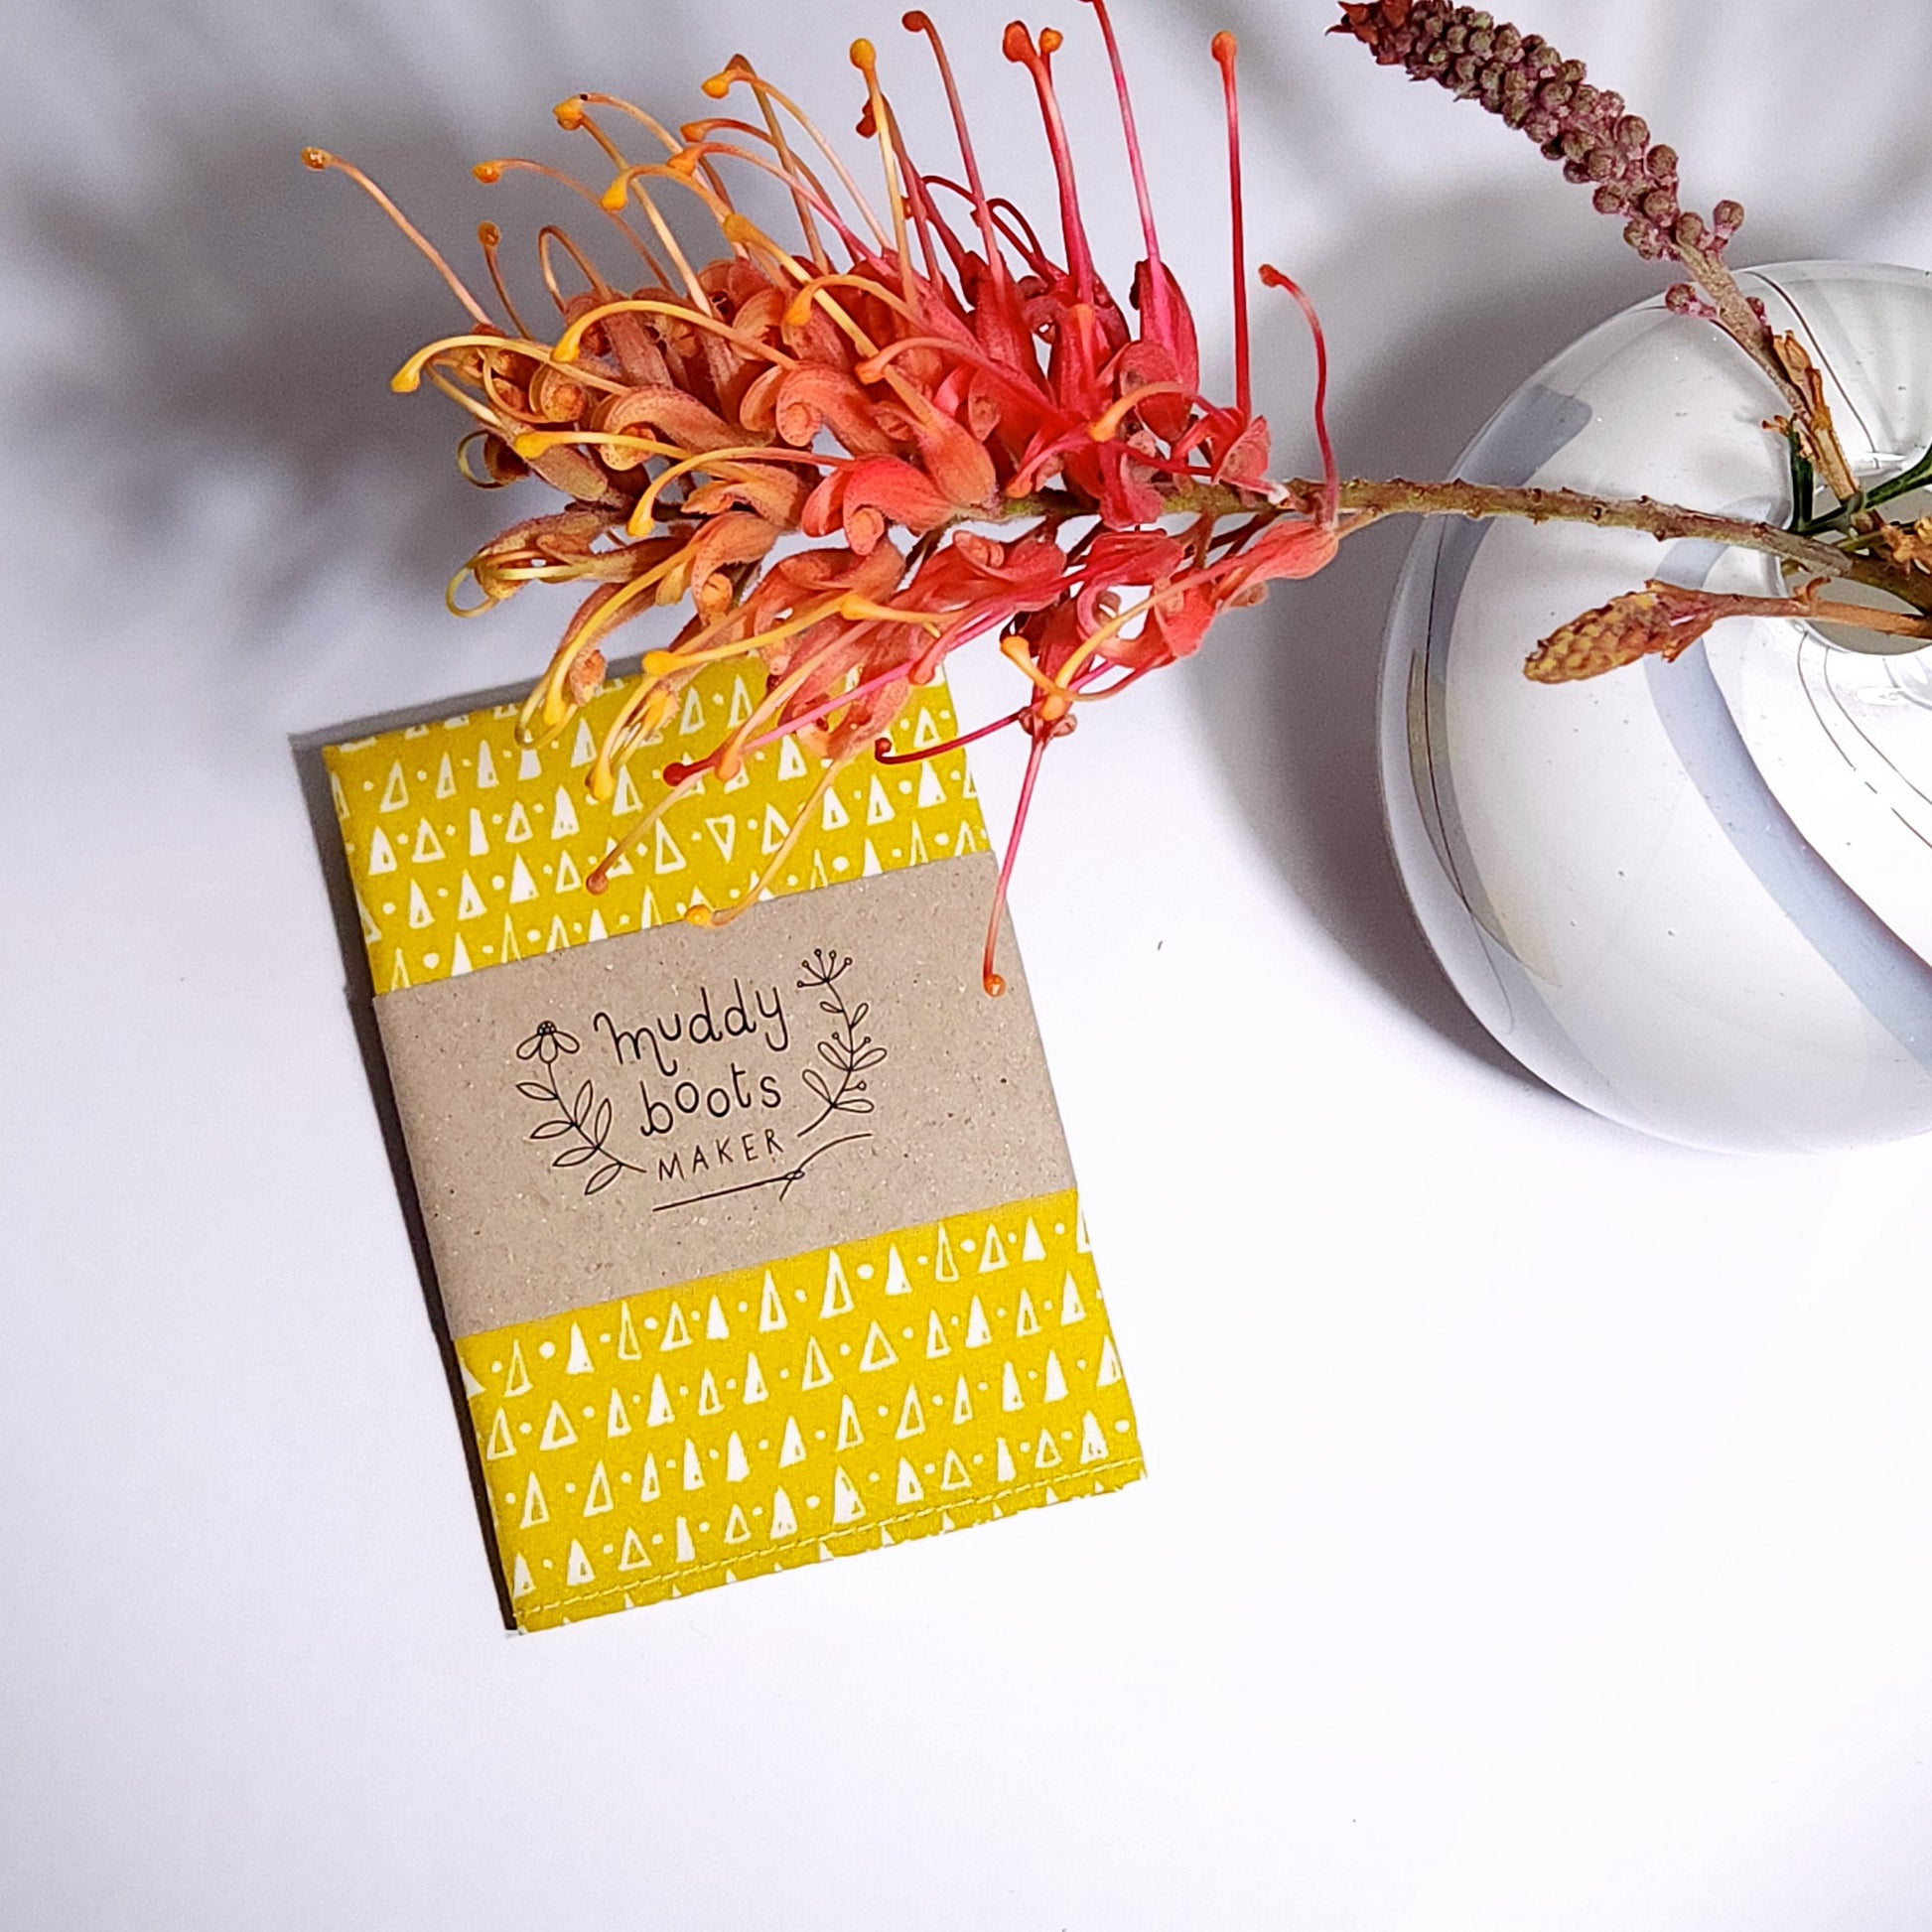 muddy
boots
MAKER